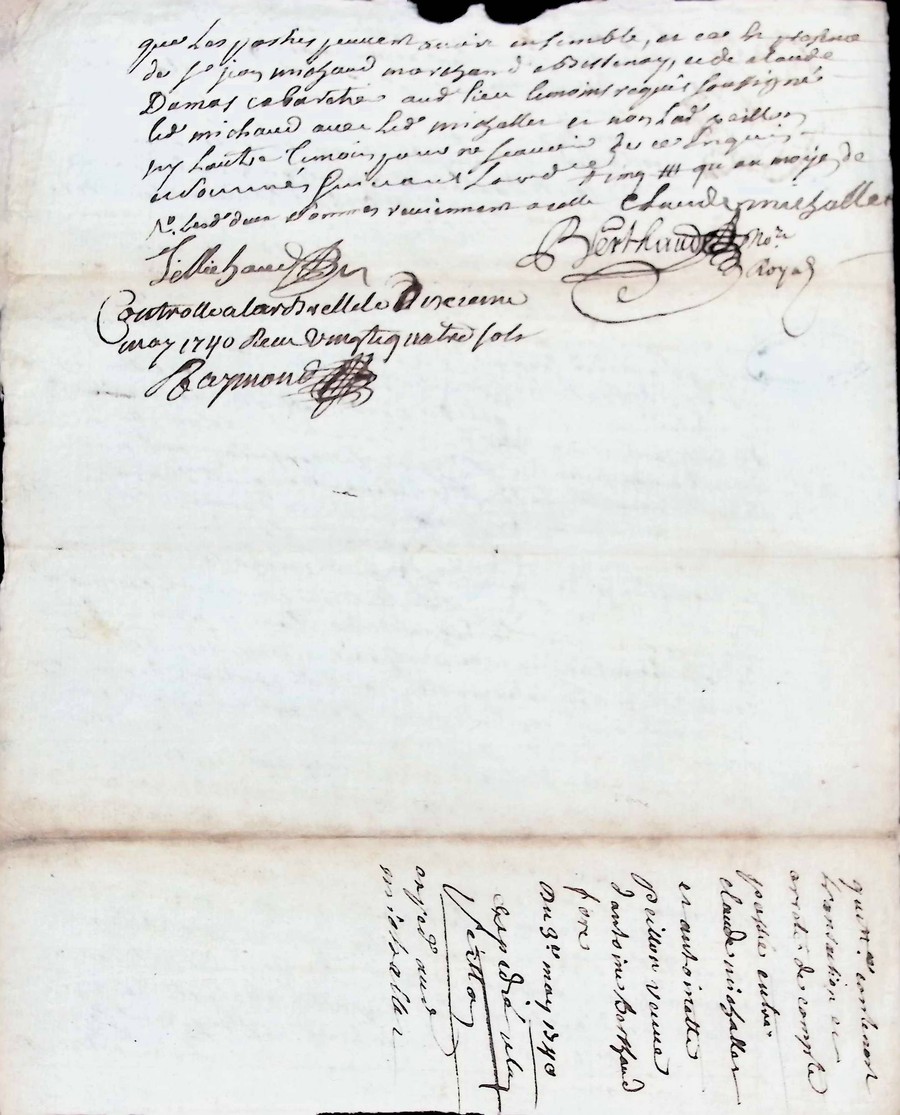 que les parties peuvent avoir ensemble, et ce en presence
de Sr jean michaud marchand a Bessenay, et de claude
Damas cabaretier aud lieu temoins requis soussignés
led michaud avec led michallet et non lad peillon
ny l'autre temoin pour ne scavoir de ce enquis
et sommés suivant l'ord ce # cinq ttt qu'au moyen de
lesd deux sommes reviennent a celle claude michallet
J Michaud
Berthaud No.re
Royal
Controllé a larbrelle le Dixieme
may 1740 Receu vingt quatre sols
Raymond
quitt.ce contenant
transaction et
arreté de compte
passée entre
claude michallet
et antoinette
Peillon veuve
d'antoine Berthaud
fore
Du 3e may 1740
expedié a la
Peillon
expedié aud
michallet